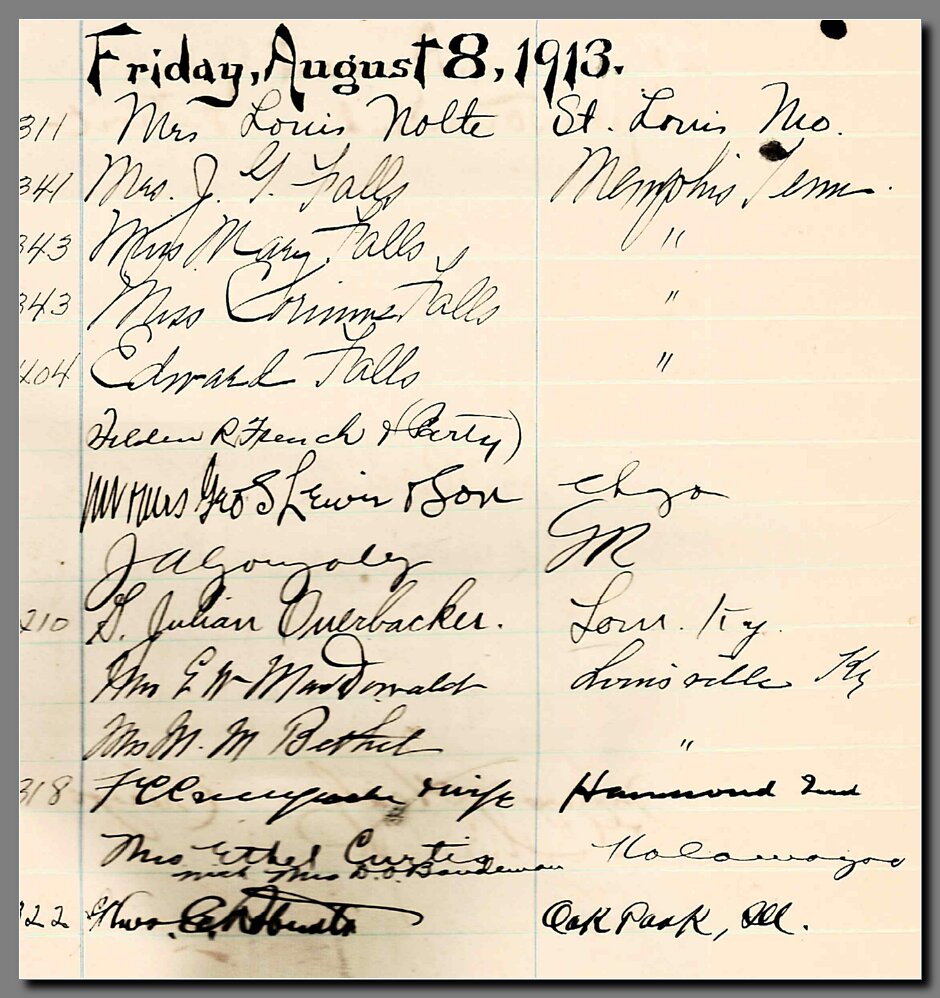 Friday, August 8, 1913.
311 Mrs Louis Nolte St. Louis Mo.
341 Mrs. J. G. Falls Memphis Tenn.
343 Miss Mary Falls "
343 Miss Corinne Falls "
404 Edward Falls "
R French & (Party)
Mr & Mrs Geo S Lewis & Son Chgo
J A Gonzalez GR
210 D. Julian Overbacker. Lou. Ky.
Mrs E W MacDonald Louisville Ky
Mrs M. M Bethel "
318 & wife Hammond Ind
Mrs Ethel Curtis Kalamazoo
with Mrs D.O. Boudeman
322 Oak Park, Ill.